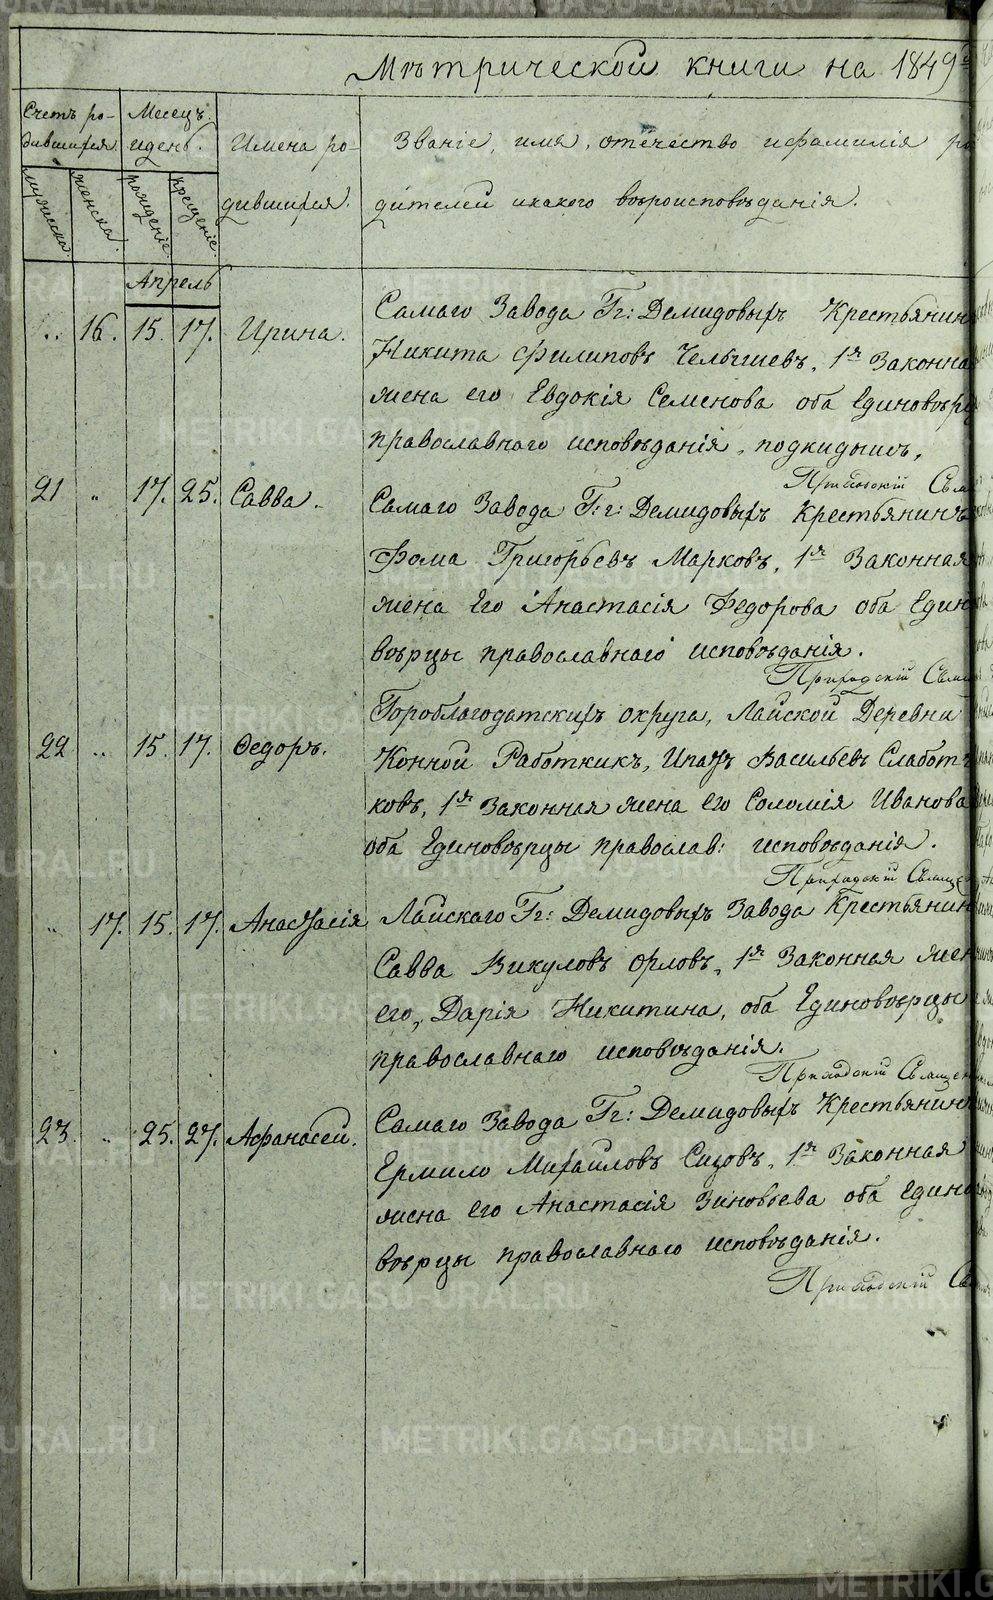 Метрической книги на 1849
Счетъ ро- Месецъ
дившихся. и день. Имена ро- Званіе, имя, отечество и фамилія ро
мужеска женска. рожденіе крещеніе. дившихся. дителей и какого вѣроисповѣданія.
Апрель
16. 15. 17. Ирина. Самаго Завода Гг: Демидовыхъ Крестьянин
Никита Филиповъ Челышевъ, 1я Законна
жена его Евдокія Семенова оба Единовѣр
православнаго исповѣданія, подкидышъ.
Приходскій Свящ
21 „ 17. 25. Савва. Самаго Завода Гг: Демидовыхъ Крестьянинъ
Фома Григорьевъ Марковъ, 1я Законная
жена Его Анастасія Федорова оба Един
вѣрцы православнаго исповѣданія.
Приходскій Свящ
Гороблагодатскихъ округа, Лайской Деревни
22 „ 15. 17. Ѳедоръ. Конной Работкикъ, Ипатъ Васильевъ Слабот
ковъ, 1я Законная жена его Соломія Иванова
оба Единовѣрцы православ: исповѣданія.
Приходскій Свяще
„ 17. 15. 17. Анастасія Лайскаго Гг: Демидовыхъ Завода Крестьянин
Савва Викуловъ Орловъ, 1я Законная жен
его, Дарія Никитина, оба Единовѣрцы
православнаго исповѣданія.
Приходскій Священ
23. „ 25. 27. Афанасей. Самаго Завода Гг: Демидовыхъ Крестьянинъ
Ермило Михайловъ Сизовъ, 1я Законная
жена его Анастасія Зиновьева оба Едино
вѣрцы православнаго исповѣданія.
Приходскій Св
METRIKI.GASO-URAL.RU